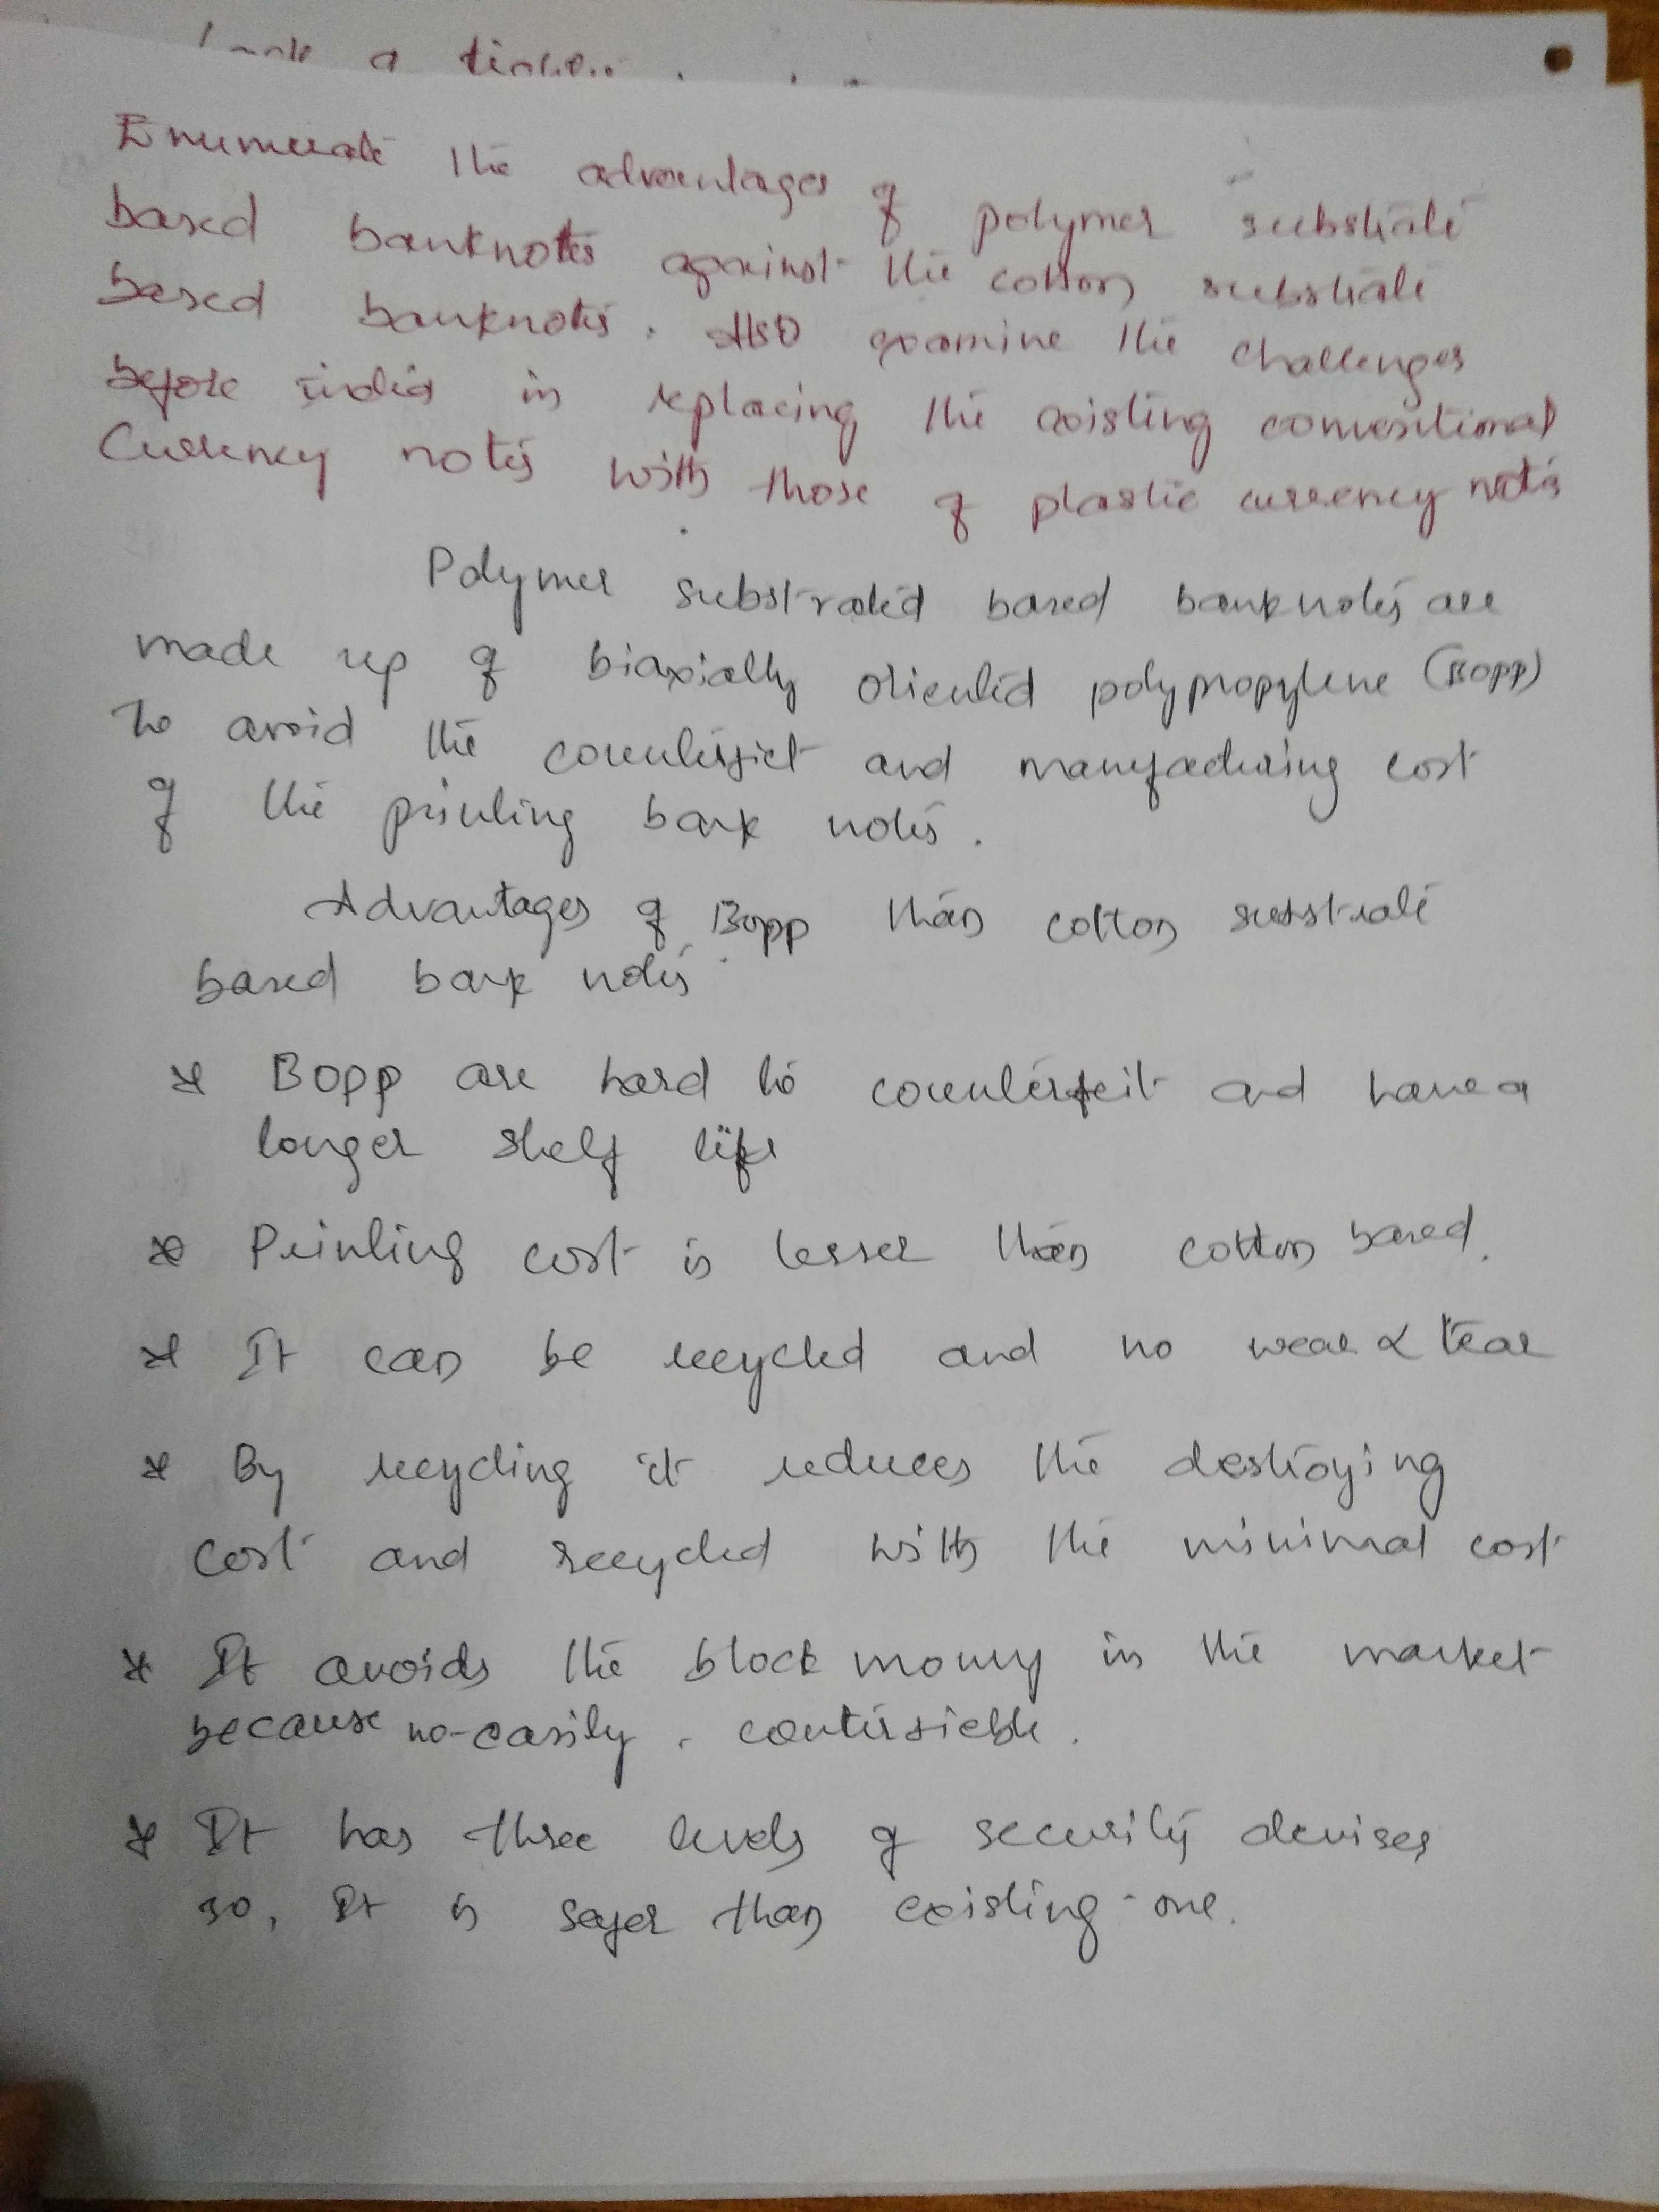 a
Enumerate the advantages of polymer substrate
based banknotes against the cotton substrate
based banknotes. Also examine the challenges
before India in replacing the existing conventional
Currency notes with those of plastic currency notes
Polymer substrated based banknotes are
made up of biaxially oriented polypropylene (BOPP)
to avoid the counterfiet and manufacturing cost
of the printing bank notes.
Advantages of Bopp than cotton substrate
based bank notes
* Bopp are hard to counterfeit and have a
longer shelf life
* Printing cost is lesser than cotton based.
* It can be recycled and no wear & tear
* By recycling it reduces the destroying
cost and recycled with the minimal cost
* It avoids the block money in the market
because no-easily
* It has three levels of security devises
so, It is safer than existing-one.